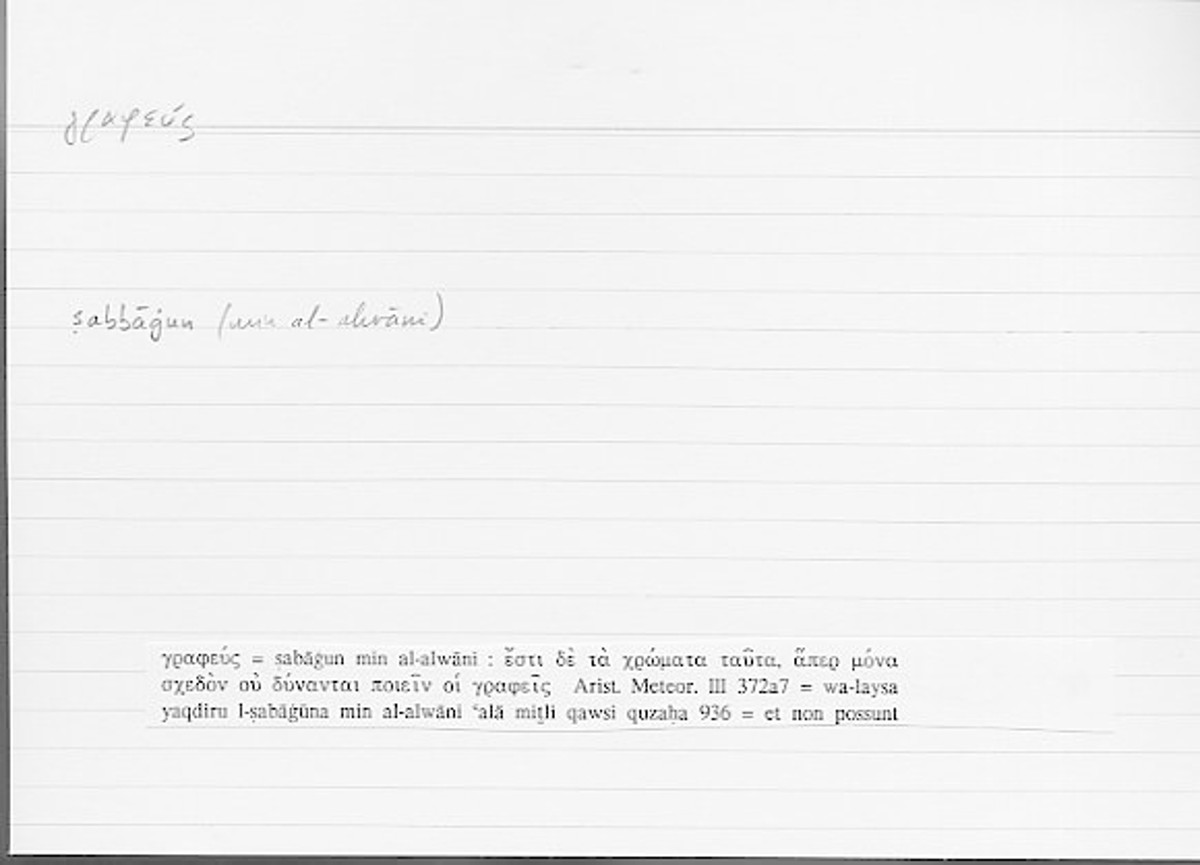 γραφεύς
ṣabbāġun (min al-alwāni)
γραφεύς = ṣabāġun min al-alwāni : ἔστι δὲ τὰ χρώματα ταῦτα, ἅπερ μόνα
σχεδὸν οὐ δύνανται ποιεῖν οἱ γραφεῖς Arist. Meteor. III 372a7 = wa-laysa
yaqdiru l-ṣabāġūna min al-alwāni ʿalā miṯli qawsi quzaḥa 936 = et non possunt